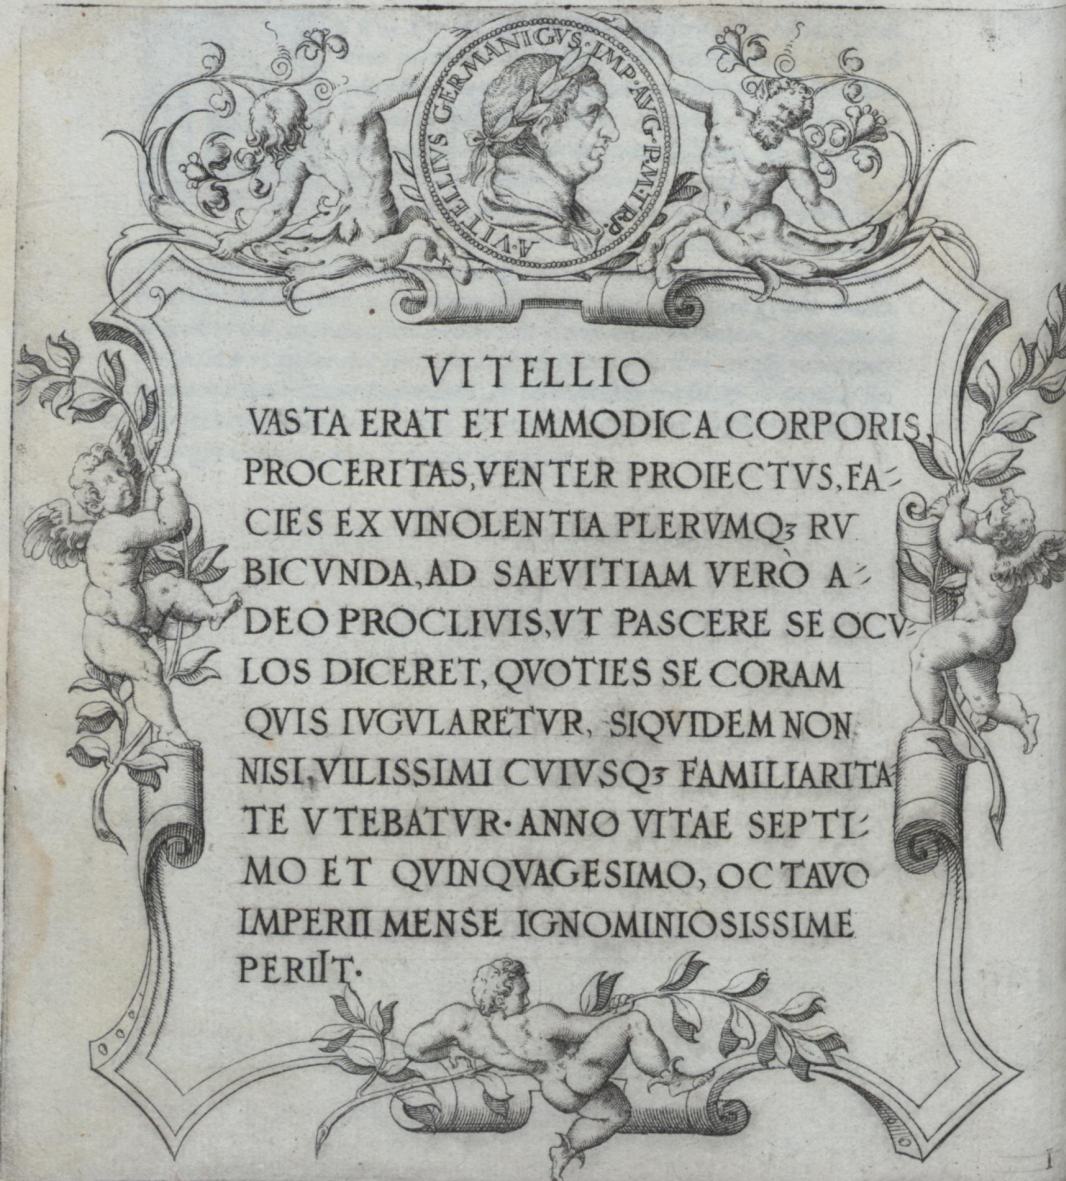 A·VITELLIVS GERMANIGVS·IMP·AVG·P·M·TR·P·
VITELLIO
VASTA ERAT ET IMMODICA CORPORIS
PROCERITAS, VENTER PROIECTVS, FA-
CIES EX VINOLENTIA PLERVMQꝫ RV
BICVNDA, AD SAEVITIAM VERÒ A-
DEO PROCLIVIS, VT PASCERE SE OCV-
LOS DICERET, QVOTIES SE CORAM
QVIS IVGVLARETVR, SIQVIDEM NON
NISI, VILISSIMI CVIVSQꝫ FAMILIARITA
TE VTEBATVR· ANNO VITAE SEPTI-
MO ET QVINQVAGESIMO, OCTAVO
IMPERII MENSE IGNOMINIOSISSIME
PERIIT·